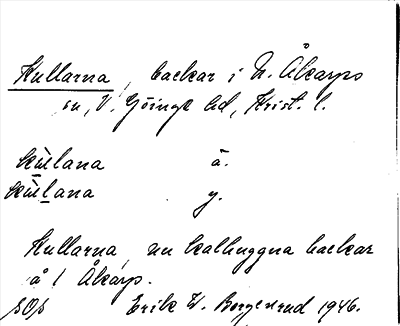 Kullarna, backar i N. Åkarps
sn, V. Göinge hd, Krist. l.
kùlana ä.
kùlana y.
Kullarna, nu kalhuggna backar
å 1 Åkarp.
SOS Erik W. Borgenrud 1946.